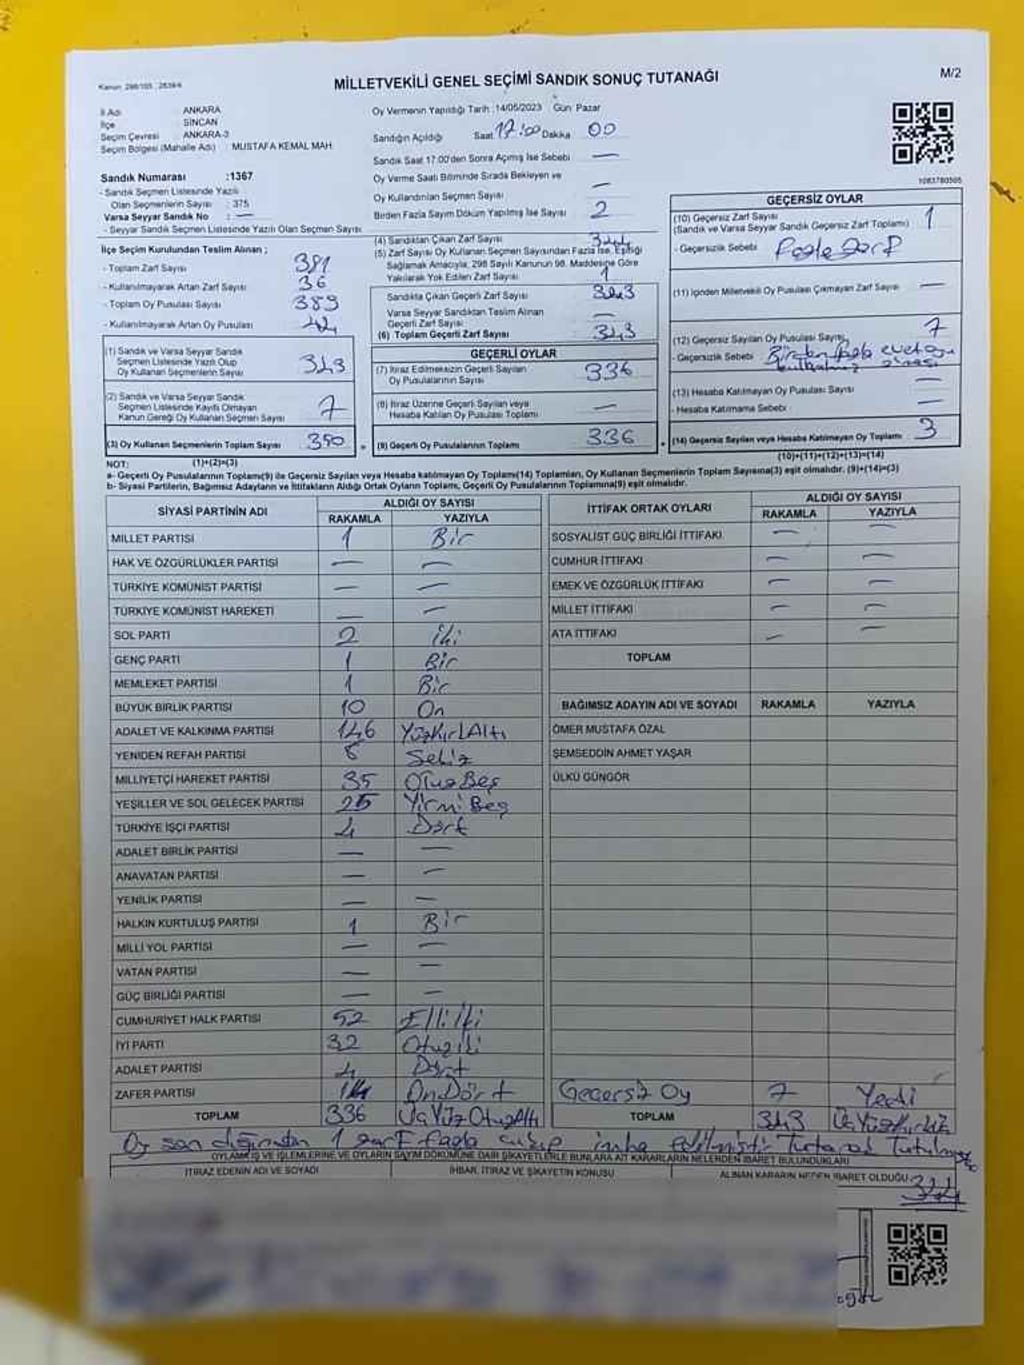 Kanun: 298/105, 2839/4
MİLLETVEKİLİ GENEL SEÇİMİ SANDIK SONUÇ TUTANAĞI
M/2
İl Adı : ANKARA
İlçe : SİNCAN
Seçim Çevresi : ANKARA-3
Seçim Bölgesi (Mahalle Adı) : MUSTAFA KEMAL MAH.
Sandık Numarası :1367
- Sandık Seçmen Listesinde Yazılı
Olan Seçmenlerin Sayısı : 375
Varsa Seyyar Sandık No : —
- Seyyar Sandık Seçmen Listesinde Yazılı Olan Seçmen Sayısı
Oy Vermenin Yapıldığı Tarih :14/05/2023 Gün: Pazar
Sandığın Açıldığı Saat 17:00 Dakika 00
Sandık Saat 17:00'den Sonra Açılmış İse Sebebi —
Oy Verme Saati Bitiminde Sırada Bekleyen ve
Oy Kullandırılan Seçmen Sayısı —
Birden Fazla Sayım Döküm Yapılmış İse Sayısı 2
1083780505
İlçe Seçim Kurulundan Teslim Alınan ;
- Toplam Zarf Sayısı 381
- Kullanılmayarak Artan Zarf Sayısı 36
- Toplam Oy Pusulası Sayısı 389
- Kullanılmayarak Artan Oy Pusulası 42
(1) Sandık ve Varsa Seyyar Sandık
Seçmen Listesinde Yazılı Olup
Oy Kullanan Seçmenlerin Sayısı 343
(2) Sandık ve Varsa Seyyar Sandık
Seçmen Listesinde Kayıtlı Olmayan
Kanun Gereği Oy Kullanan Seçmen Sayısı 7
(3) Oy Kullanan Seçmenlerin Toplam Sayısı 350
(1)+(2)=(3)
(4) Sandıktan Çıkan Zarf Sayısı 344
(5) Zarf Sayısı Oy Kullanan Seçmen Sayısından Fazla İse, Eşitliği
Sağlamak Amacıyla, 298 Sayılı Kanunun 98. Maddesine Göre
Yakılarak Yok Edilen Zarf Sayısı 1
Sandıkta Çıkan Geçerli Zarf Sayısı 343
Varsa Seyyar Sandıktan Teslim Alınan
Geçerli Zarf Sayısı —
(6) Toplam Geçerli Zarf Sayısı 343
GEÇERLİ OYLAR
(7) İtiraz Edilmeksizin Geçerli Sayılan
Oy Pusulalarının Sayısı 336
(8) İtiraz Üzerine Geçerli Sayılan veya
Hesaba Katılan Oy Pusulası Toplamı —
(9) Geçerli Oy Pusulalarının Toplamı 336
GEÇERSİZ OYLAR
(10) Geçersiz Zarf Sayısı
(Sandık ve Varsa Seyyar Sandık Geçersiz Zarf Toplamı) 1
- Geçersizlik Sebebi Fazla zarf
(11) İçinden Milletvekili Oy Pusulası Çıkmayan Zarf Sayısı —
(12) Geçersiz Sayılan Oy Pusulası Sayısı 7
- Geçersizlik Sebebi Birden fazla evet oyu
(13) Hesaba Katılmayan Oy Pusulası Sayısı —
- Hesaba Katılmama Sebebi —
(14) Geçersiz Sayılan veya Hesaba Katılmayan Oy Toplamı 3
(10)+(11)+(12)+(13)=(14)
NOT:
a- Geçerli Oy Pusulalarının Toplamı(9) ile Geçersiz Sayılan veya Hesaba katılmayan Oy Toplamı(14) Toplamları, Oy Kullanan Seçmenlerin Toplam Sayısına(3) eşit olmalıdır. (9)+(14)=(3)
b- Siyasi Partilerin, Bağımsız Adayların ve İttifakların Aldığı Ortak Oyların Toplamı, Geçerli Oy Pusulalarının Toplamına(9) eşit olmalıdır.
SİYASİ PARTİNİN ADI ALDIĞI OY SAYISI
RAKAMLA YAZIYLA
MİLLET PARTİSİ 1 Bir
HAK VE ÖZGÜRLÜKLER PARTİSİ — —
TÜRKİYE KOMÜNİST PARTİSİ — —
TÜRKİYE KOMÜNİST HAREKETİ — —
SOL PARTİ 2 iki
GENÇ PARTİ 1 Bir
MEMLEKET PARTİSİ 1 Bir
BÜYÜK BİRLİK PARTİSİ 10 On
ADALET VE KALKINMA PARTİSİ 146 YüzKırkAltı
YENİDEN REFAH PARTİSİ 8 Sekiz
MİLLİYETÇİ HAREKET PARTİSİ 35 OtuzBeş
YEŞİLLER VE SOL GELECEK PARTİSİ 25 Yirmi Beş
TÜRKİYE İŞÇİ PARTİSİ 4 Dört
ADALET BİRLİK PARTİSİ — —
ANAVATAN PARTİSİ — —
YENİLİK PARTİSİ — —
HALKIN KURTULUŞ PARTİSİ 1 Bir
MİLLİ YOL PARTİSİ — —
VATAN PARTİSİ — —
GÜÇ BİRLİĞİ PARTİSİ — —
CUMHURİYET HALK PARTİSİ 52 Elliİki
İYİ PARTİ 32 Otuziki
ADALET PARTİSİ 4 Dört
ZAFER PARTİSİ 14 OnDört
TOPLAM 336 ÜçYüzOtuzAltı
İTTİFAK ORTAK OYLARI ALDIĞI OY SAYISI
RAKAMLA YAZIYLA
SOSYALİST GÜÇ BİRLİĞİ İTTİFAKI — —
CUMHUR İTTİFAKI — —
EMEK VE ÖZGÜRLÜK İTTİFAKI — —
MİLLET İTTİFAKI — —
ATA İTTİFAKI — —
TOPLAM
BAĞIMSIZ ADAYIN ADI VE SOYADI RAKAMLA YAZIYLA
ÖMER MUSTAFA ÖZAL
ŞEMSEDDİN AHMET YAŞAR
ÜLKÜ GÜNGÖR
Geçersiz Oy 7 Yedi
TOPLAM 343
Oy sandığından 1 zarf fazla çıkıp imha edilmiştir Tutanak
OYLAMA İŞ VE İŞLEMLERİNE VE OYLARIN SAYIM DÖKÜMÜNE DAİR ŞİKAYETLERLE BUNLARA AİT KARARLARIN NELERDEN İBARET BULUNDUKLARI
İTİRAZ EDENİN ADI VE SOYADI İHBAR, İTİRAZ VE ŞİKAYETİN KONUSU ALINAN KARARIN NEDEN İBARET OLDUĞU
344